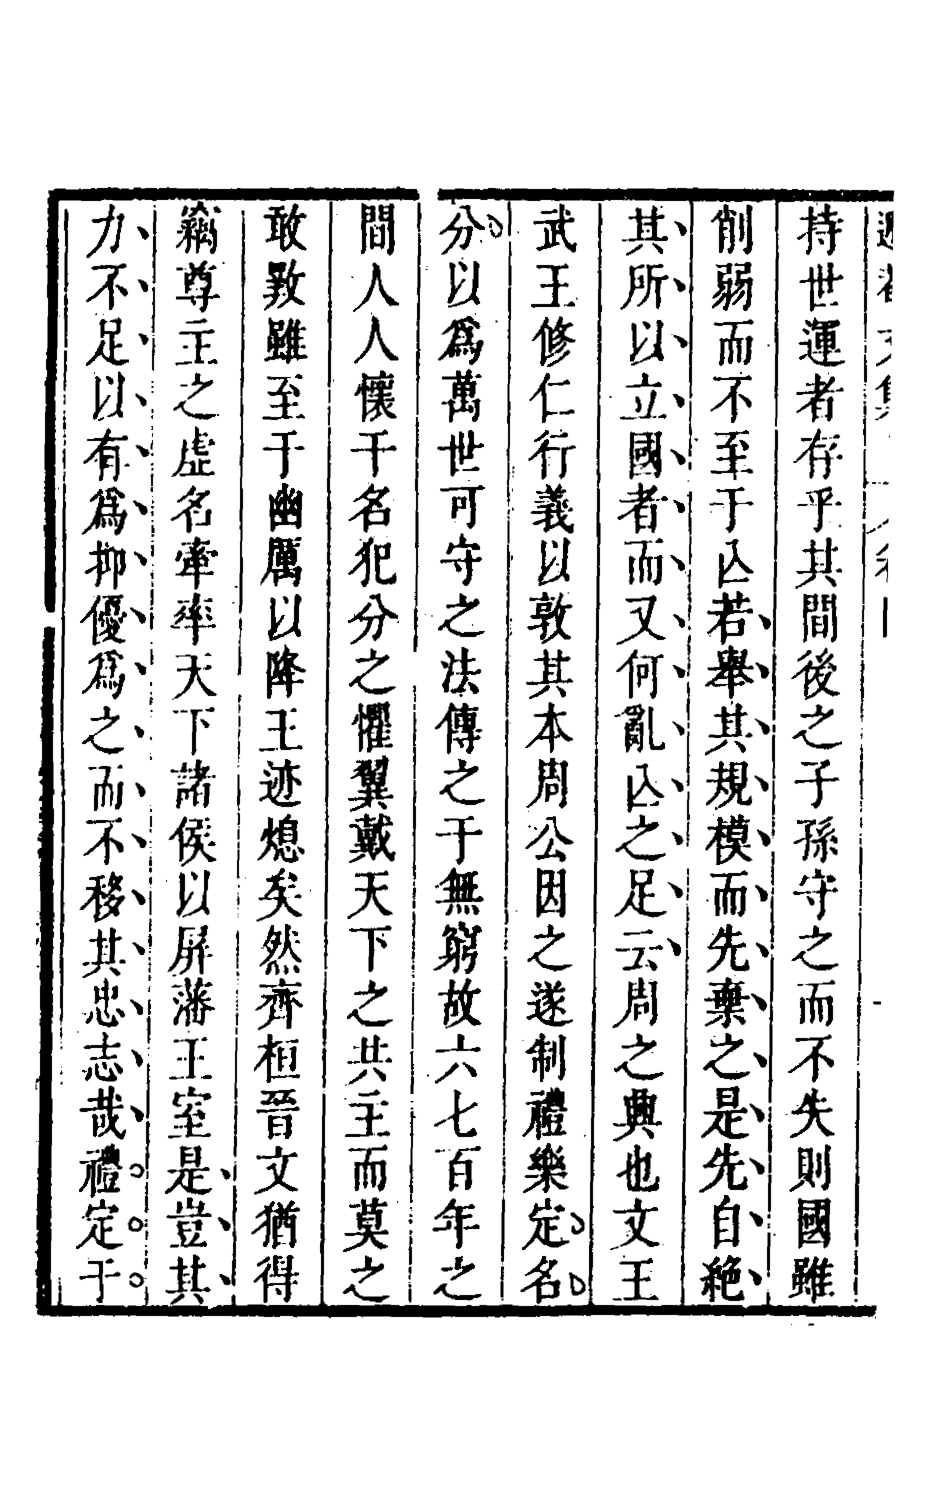 持世運者存乎其間後之子孫守之而不失則國雖
削弱而不至于亾若舉其規模而先棄之是先自絕
其所以立國者而又何亂亾之足云周之典也文王
武王修仁行義以敦其本周公因之遂制禮樂定名
分以爲萬世可守之法傳之于無窮故六七百年之
間人人懷干名犯分之懼翼戴天下之共主而莫之
敢斁雖至于幽厲以降王迹熄矣然齊桓晉文猶得
竊尊主之虛名牽率天下諸侯以屏藩王室是豈其
力不足以有爲抑優爲之而不移其忠志哉禮定于